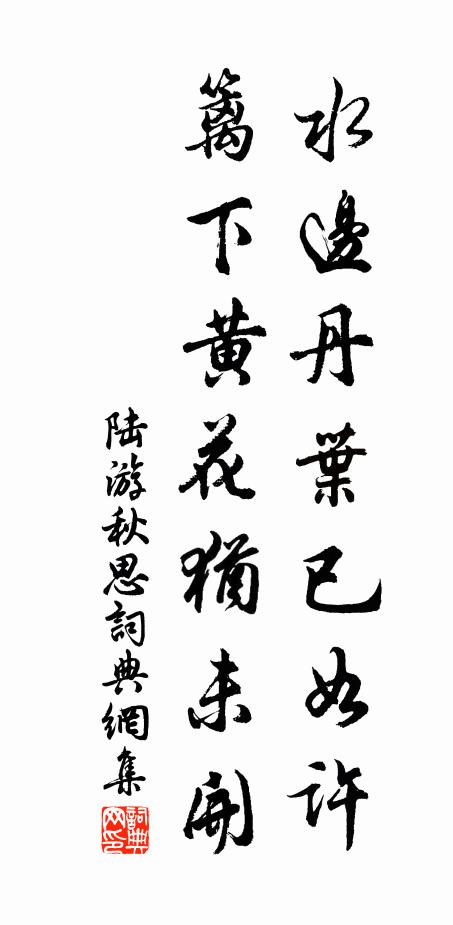 水邊丹葉已如許
籬下黄花猶未開
陆游秋思詞典網集
詞典网印